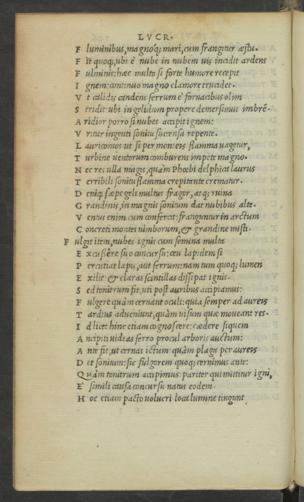 LVCR.
F luminibus, magnoq; mari, cum frangitur æstu.
F it quoq; ubi è nube in nubem uis incidit ardens
F ulminis: hæc multo si forte humore recepit
I gnem: continuo magno clamore trucidat.
V t calidis candens ferrum è fornacibus olim
S tridit: ubi in gelidum propere demersimus imbrē.
A ridior porro si nubes accipit ignem:
V ritur ingenti sonitu succensa repente.
L auricomos ut si per montes flamma uagetur,
T urbine uentorum comburens impete magno.
N ec res ulla magis, quàm Phœbi delphica laurus
T erribili sonitu flamma crepitante crematur.
D eniq; sæpe geli multus fragor, atq; ruina
G randinis, in magnis sonitum dat nubibus alte.
V entus enim cum confercit: franguntur in arctum
C oncreti montes nimborum, & grandine misti.
F ulgit item, nubes ignis cum semina multa
E xcussere suo concursu: ceu lapidem si
P ercutiat lapis, aut ferrum: nam tum quoq; lumen
E xilit: & claras scintillas dissipat ignis.
S ed tonitrum fit, uti post auribus accipiamus:
F ulgere quàm cernant oculi: quia semper ad aureis
T ardius adueniunt, quàm uisum quæ moueant res.
I d licet hinc etiam cognoscere: cædere siquem
A ncipiti uideas ferro procul arboris auctum:
A nte fit, ut cernas ictum: quàm plaga per aureis
D et sonitum: sic fulgorem quoq; cernimus ante:
Q uàm tonitrum accipimus: pariter qui mittitur igni,
E simili causa concursu natus eodem.
H oc etiam pacto uolucri loca lumine tingunt